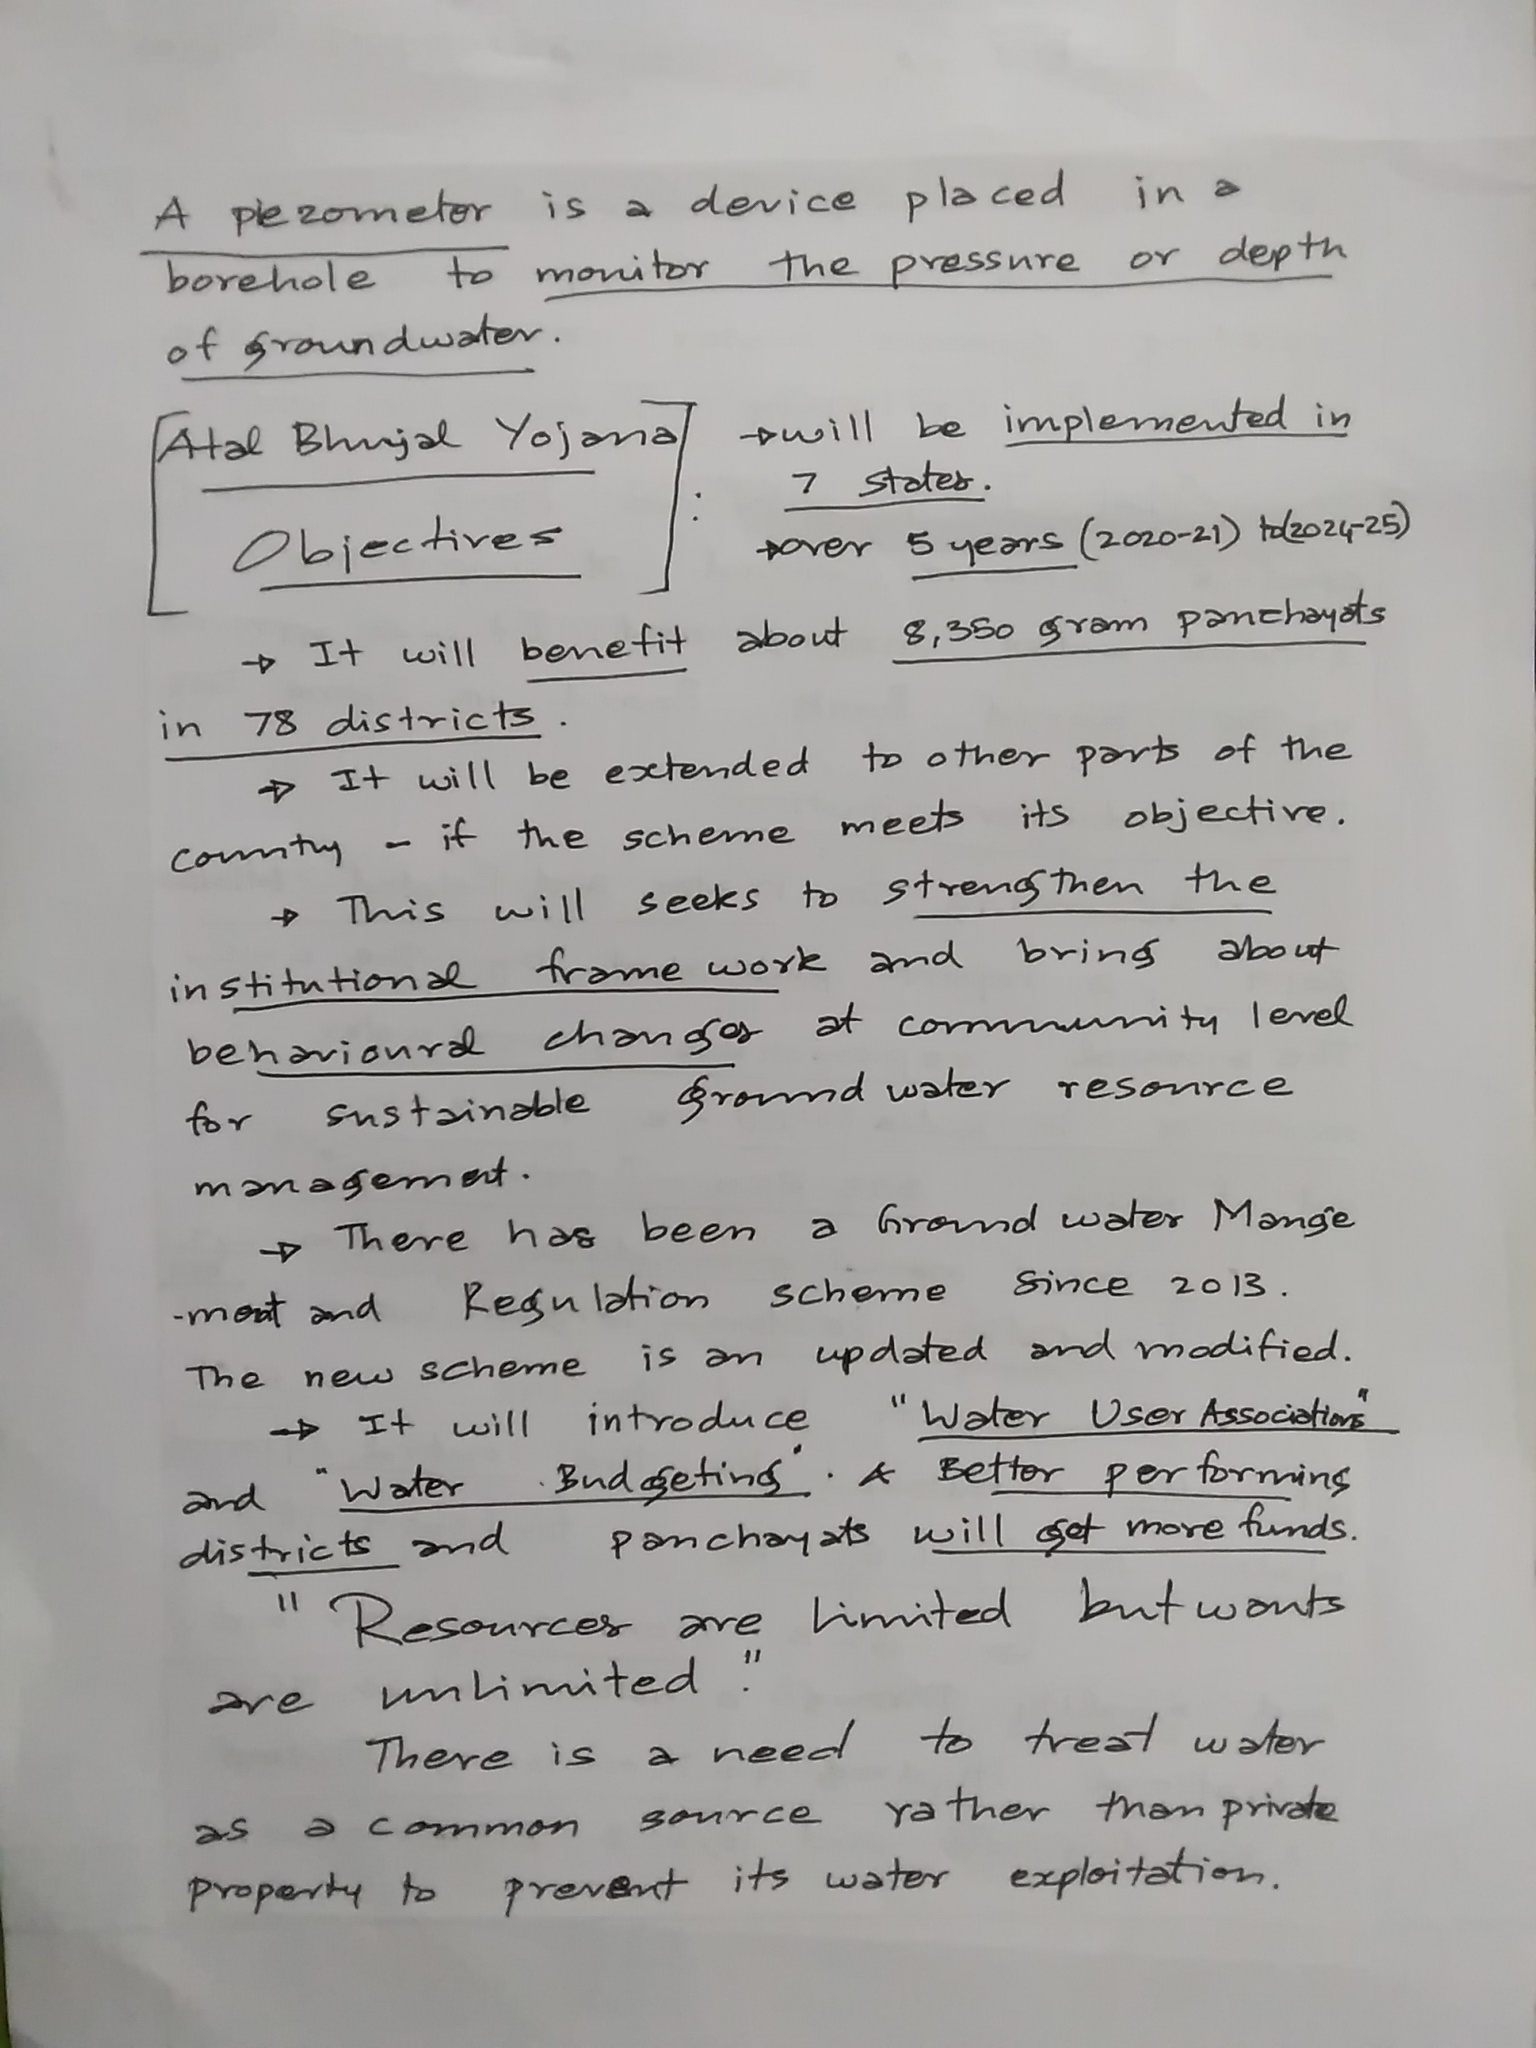 A piezometer is a device placed in a
borehole to monitor the pressure or depth
of groundwater.
[Atal Bhujal Yojana → will be implemented in
7 states.
Objectives] : → over 5 years (2020-21) to (2024-25)
→ It will benefit about 8,350 gram panchayats
in 78 districts.
→ It will be extended to other parts of the
country - if the scheme meets its objective.
→ This will seeks to strengthen the
institutional frame work and bring about
behavioural changes at community level
for sustainable ground water resource
management.
→ There has been a Ground water Mange
-ment and Regulation scheme since 2013.
The new scheme is an updated and modified.
→ It will introduce "Water User Associations"
and "Water Budgeting". & Better performing
districts and panchayats will get more funds.
"Resources are limited but wants
are unlimited."
There is a need to treat water
as a common source rather than private
property to prevent its water exploitation.